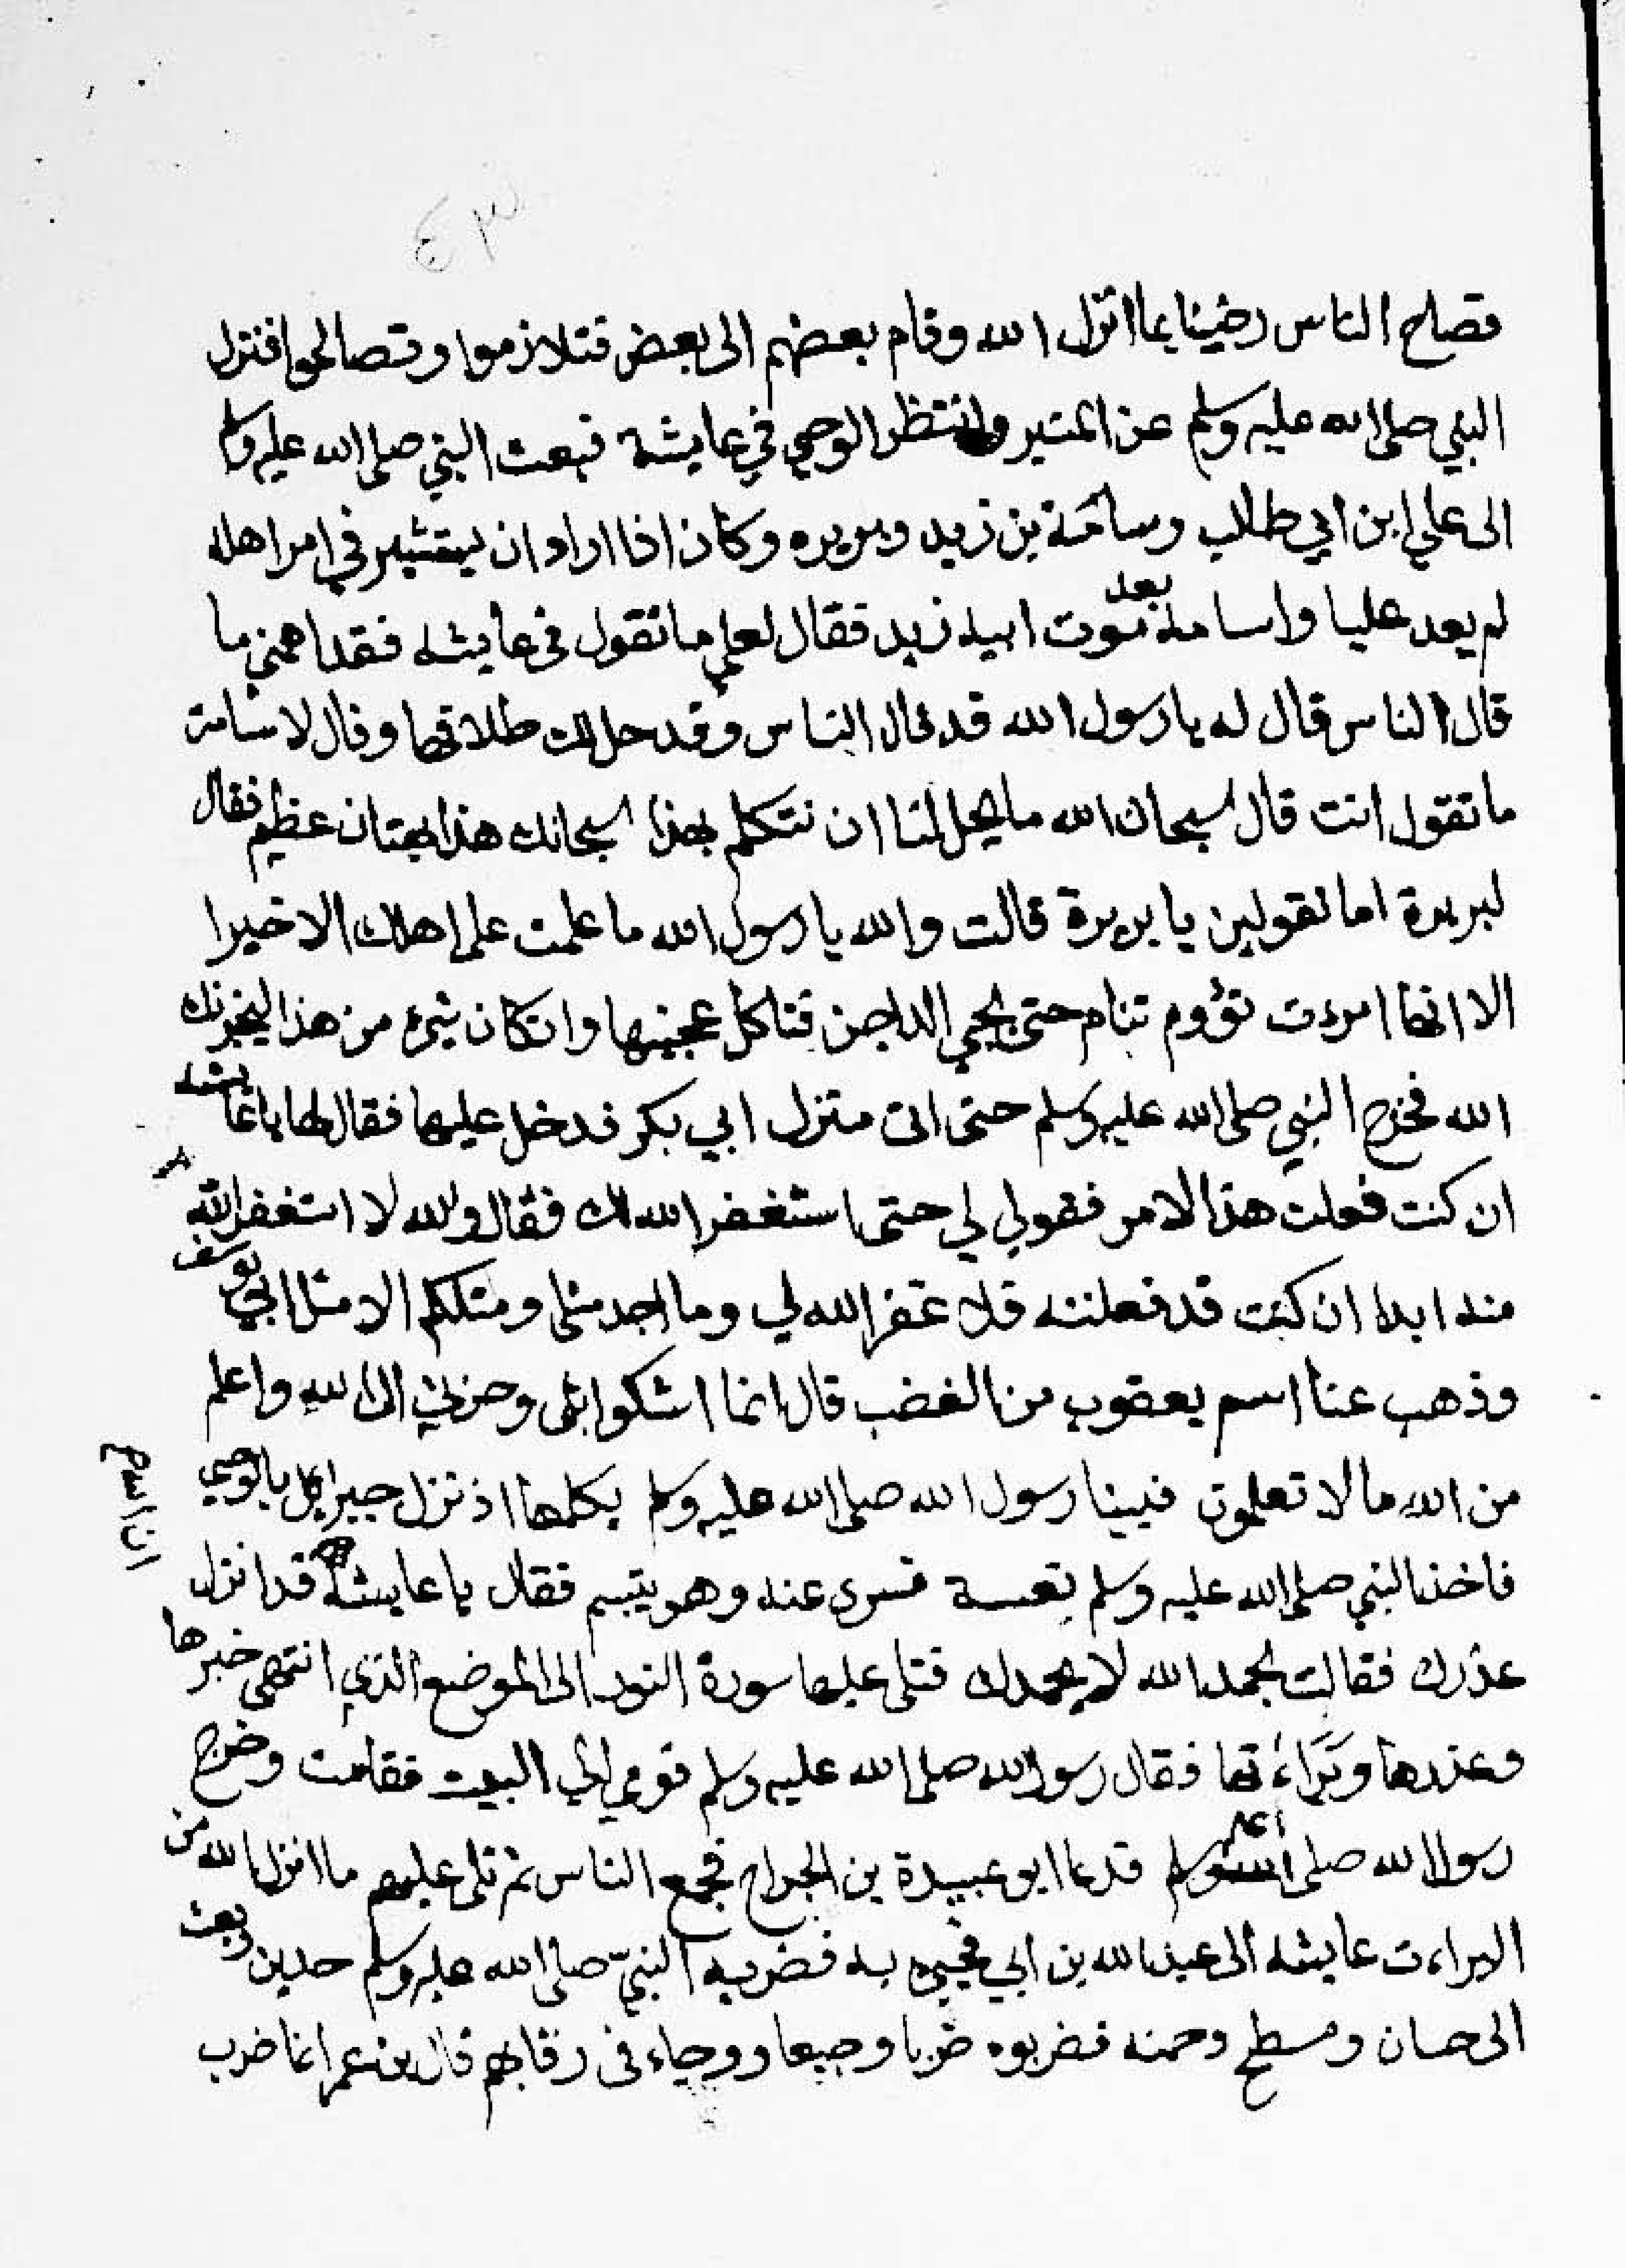 ٤٣
فصلح الناس رضينا بما انزل الله وقام بعضهم الى بعض فتلازموا وتصالحوا فنزل
النبي صلى الله عليه وسلم عن المنبر وانتظر الوحي في عايشة فبعث النبي صلى الله عليه وسلم
الى علي ابن ابي طلاب وسامة بن زيد وبريره وكان اذا اراد ان يستشير في امر اهله
لم يعد عليا واسامة بعد موت ابيه زيد فقال لعلي ما تقول في عايشه فقد اهمني ما
قال الناس قال له يا رسول الله قد قال الناس وقد حل لك طلاقها وقال لاسامة
ما تقول انت قال سبحان الله ما يحل لنا ان نتكلم بهذا سبحانك هذا بهتان عظيم فقال
لبريرة اما تقولين يا بريرة قالت والله يا رسول الله ما علمت على اهلك الا خيرا
الا انها امرءت نؤوم تنام حتى يجي الداجن فتاكل عجينها وان كان شيء من هذا ليخبرنك
الله فخرج النبي صلى الله عليه وسلم حتى اتى منزل ابي بكر فدخل عليها فقال لها يا عايشه
ان كنت فعلت هذا الامر فقولي لي حتى استغفر الله لك فقال والله لا استغفر الله
منه ابدا ان كنت قد فعلته فلا غفر الله لي وما اجد مثلي ومثلكم الا مثل ابي يوسف
وذهب عنا اسم يعقوب من الغضب قال انما اشكوا بثي وحزني الى الله واعلم
من الله ما لا تعلمون فبينا رسول الله صلى الله عليه وسلم يكلمها اذ نزل جبرايل بالوحي
ان اسم
فاخذ النبي صلى الله عليه وسلم نعسة فسرى عنه وهو يتبسم فقال يا عايشة قد انزل
عذرك فقالت بحمد الله لا بحمدك فتلى عليها سورة النور الى الموضع الذي انتهى خبرها
وعذرها وبراءتها فقال رسول الله صلى الله عليه وسلم قومي الى البيت فقامت وخرج
رسول الله صلى الله عليه وسلم فدعا ابو عبيدة بن الجراح فجمع الناس ثم تلى عليهم ما انزل الله من
البراءت عايشه الى عبد الله بن ابي فجيء به فضربه النبي صلى الله عليه وسلم حدين وبعث
الى حسان ومسطح وحمنه فضربوه ضربا وجيعا ووجاء في رقابهم قال بن عمر انما ضرب